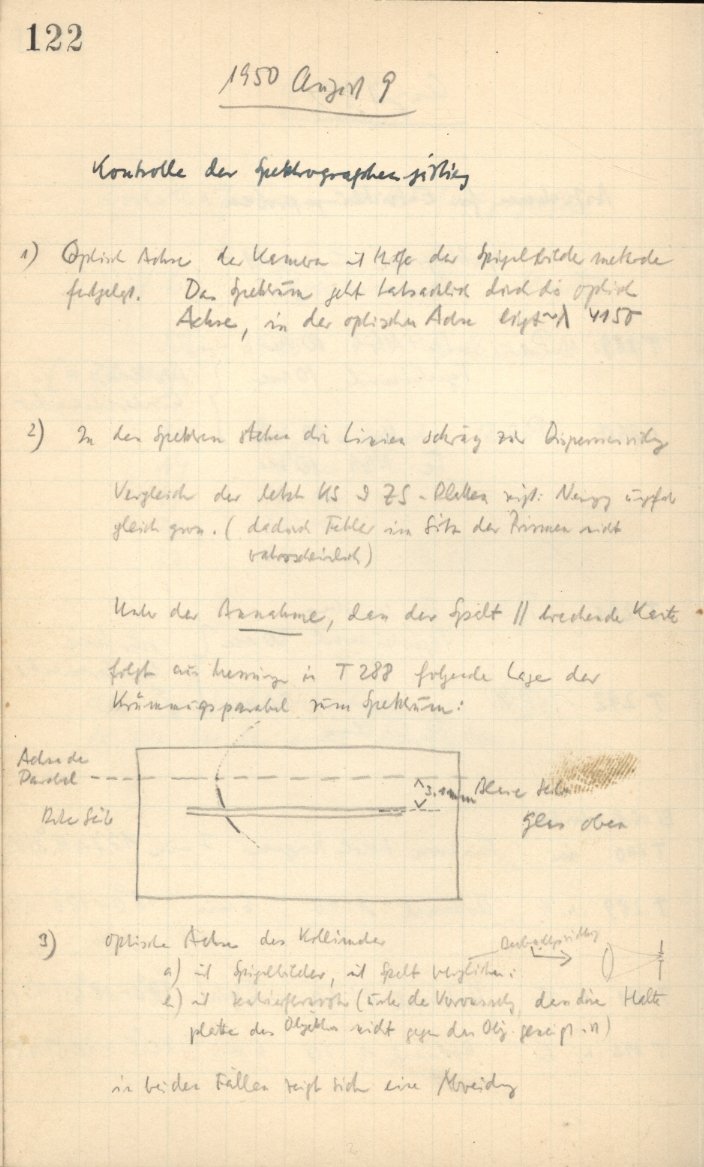 122
1950 August 9
Kontrolle der Spektrographenjustierung
1) Optische Achse der Kamera mit Hilfe der Spiegelbildermethode
festgelegt. Das Spektrum geht tatsächlich durch die optische
Achse, in der optischen Achse liegt ~λ 4150
2) In den Spektren stehen die Linien schräg zur Dispersionsrichtung
Vergleich der letzten KS und ZS-Platten zeigt: Neigung ungefähr
gleich gross. (dadurch Fehler im Sitz der Prismen nicht
wahrscheinlich)
Unter der Annahme, dass der Spalt // brechende Kante
folgt aus Messungen in T 288 folgende Lage der
Krümmungsparabel zum Spektrum:
Achse der
Parabel
3,1mm
Blaue Seite
Rote Seite
Glas oben
3) optische Achse des Kollimators
Beobachtungsrichtung
a) mit Spiegelbilder, mit Spalt verglichen:
b) mit (unter der Voraussetzung, dass die Halte
platte des Objektivs nicht gegen das Obj. geneigt ist)
in beiden Fällen zeigt sich eine Abweichung